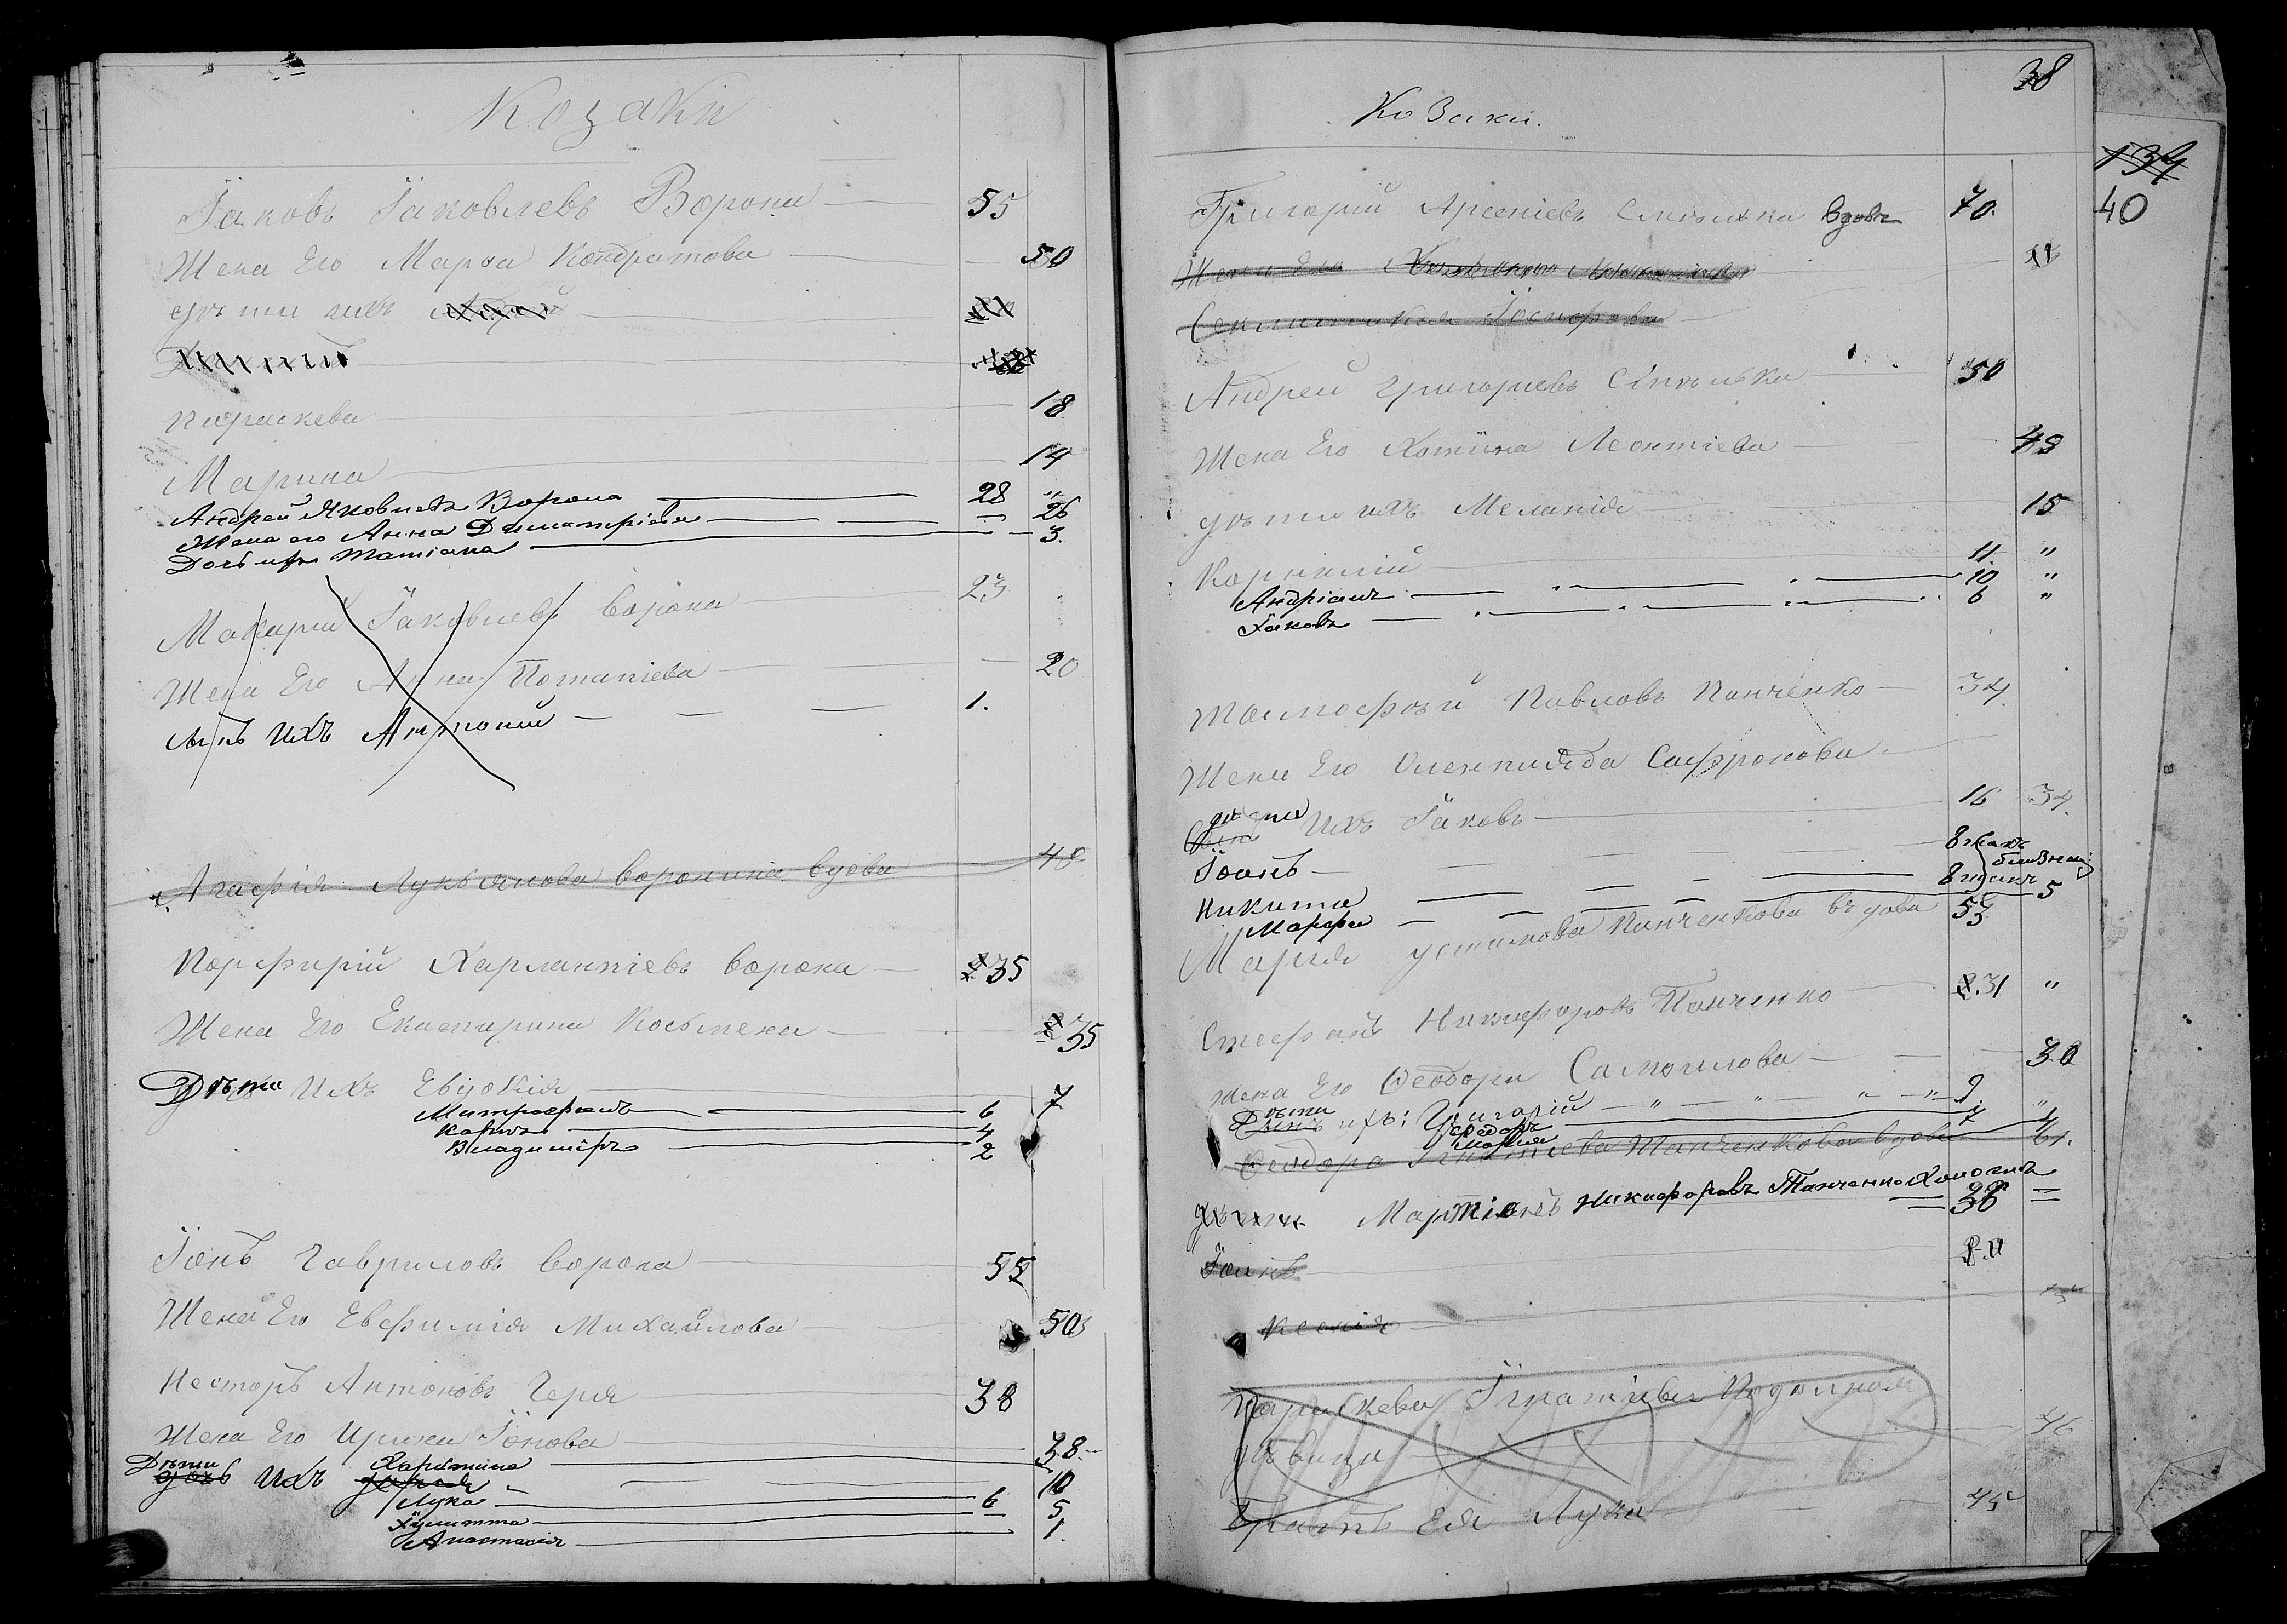 Козаки
Іаковъ Іаковлевъ Ворона 55
Жена Его Марѳа Кондратова 50
дѣти ихъ
Параскева 18
Марина 14
Андрей Яковлевъ Ворона 28 "
Жена его Анна Димитріева 26
Дочь ихъ Татіана 3.
Макарій Іаковлевъ Ворона 23
Жена Его Анна Потапіева 20
сынъ ихъ Антоній 1.
Агафія Лукьянова Воронина вдова 40
Порфирій Харлампіевъ Ворона 35
Жена Его Екатерина Косьмена 35
Дѣти ихъ Евдокія 7
Митрофанъ 6
Карпъ 4
Владиміръ 2
Іонъ Гавриловъ Ворона 52
Жена Его Евфимія Михайлова 50
Несторъ Антоновъ Геря 38
Жена Его Ирина Іонова 38
Дѣти ихъ Харитина 10
Лука 6
Хулитта 5
Анастасія 1.
38
Козаки.
139
40
Григорій Арсеніевъ вдовъ 70.
Жена Его
Іосифова
Андрей Григорьевъ 50
Жена Его Хотина Леонтіева 48
дѣти ихъ Меланія 15
Корнилій 11 "
Андріанъ 10 "
Іаковъ 6 "
Павловъ Панченко 34
Жена Его Олемпияда Сафронова 34
дѣти ихъ Іаковъ 16
Іоанъ 8
близнецы
Никита 8
Марфа 5
Марія Устимова Панченкова вдова 53
Стефанъ Никифоровъ Панченко 31 "
жена Его Ѳеодора Самоилова 30
Дѣти ихъ: Григорій 9. "
Ѳедоръ 7
Марія 1
Ѳеодора Игнатіева Панченкова вдова 61.
Мартіанъ Никифоровъ Панченко Холостъ 36 =
Іоанъ
Ксенія
Параскева Ігнатіева
дѣвица 46
Братъ Ея Лука 45